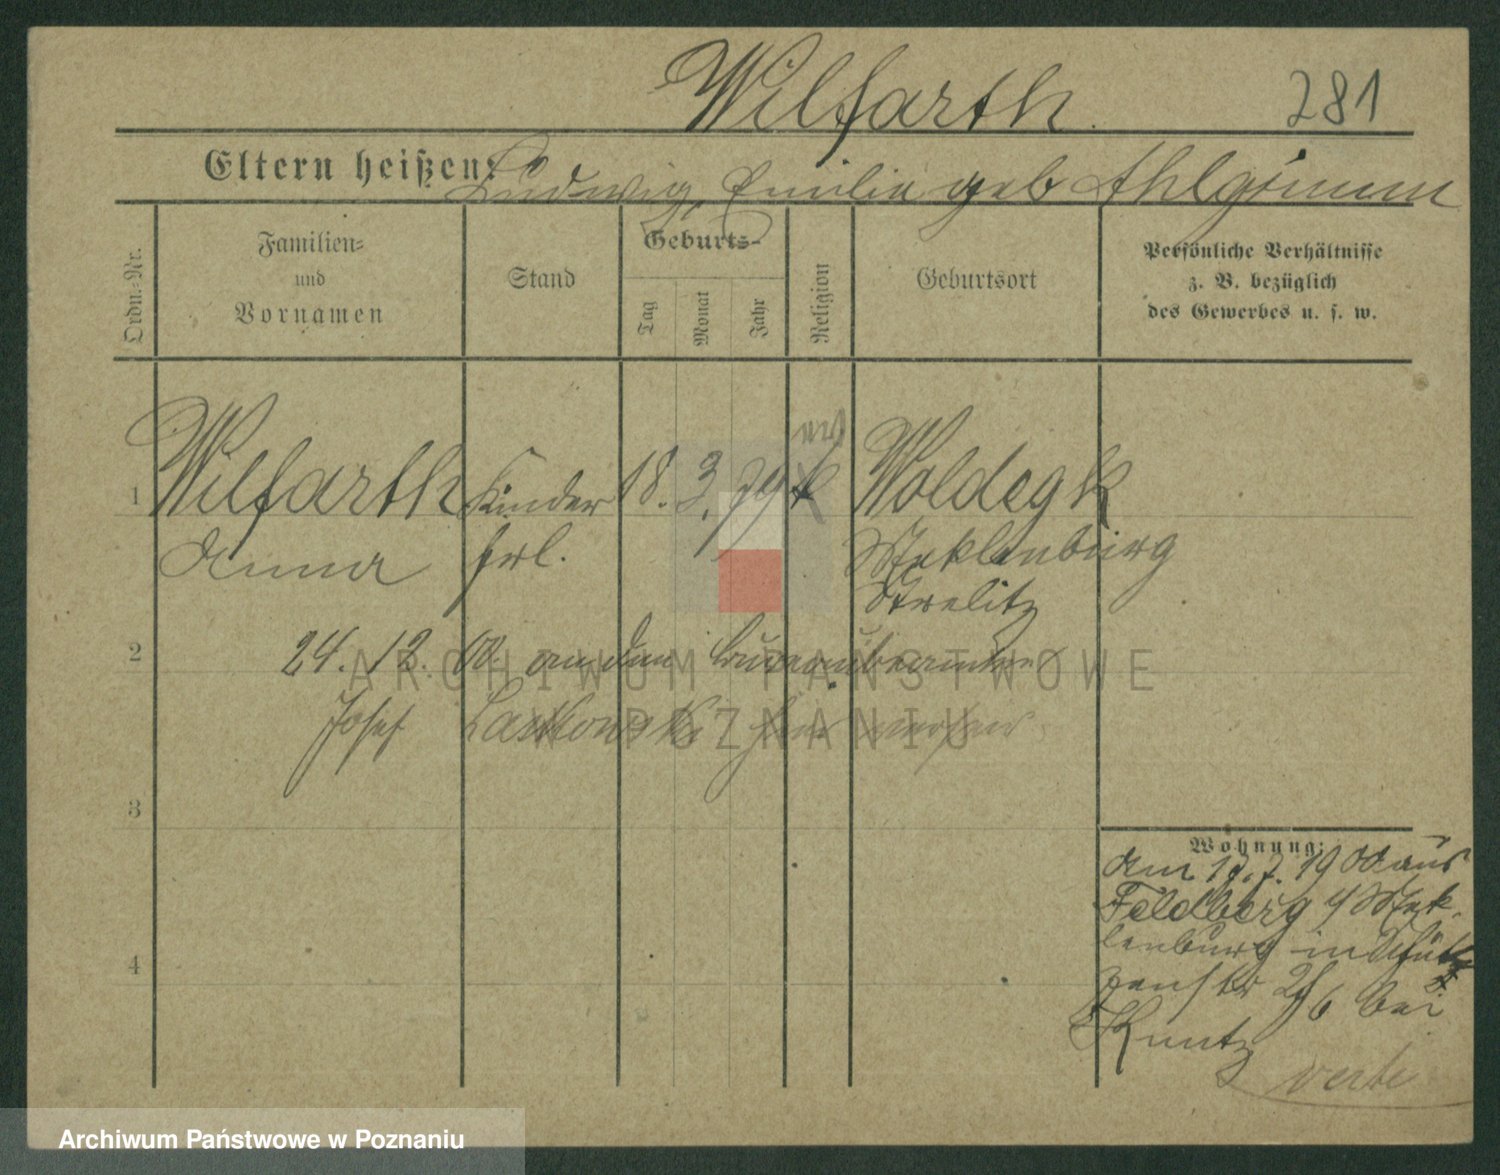 Wilfarth. 281
Eltern heißen: Ludwig, Emilie geb Ahlgrimm
Ordn.-Nr.
Familien-
und
Vornamen
Stand
Geburts-
Tag
Monat
Jahr
Religion
Geburtsort
Persönliche Verhältnisse
z. B. bezüglich
des Gewerbes u. s. w.
ev
1 Wilfarth Kinder 18. 3. 79 Woldegk
Anna frl. Meklenburg
Strelitz
2 24. 12. 00. an den
Josef
3
4
Wohnung:
am 17. 7. 1900 aus
Feldberg i/Mek-
lenburg in Schüt-
zenstr bei
Kuntz
verte
ARCHIWUM PAŃSTWOWE
W POZNANIU
Archiwum Państwowe w Poznaniu